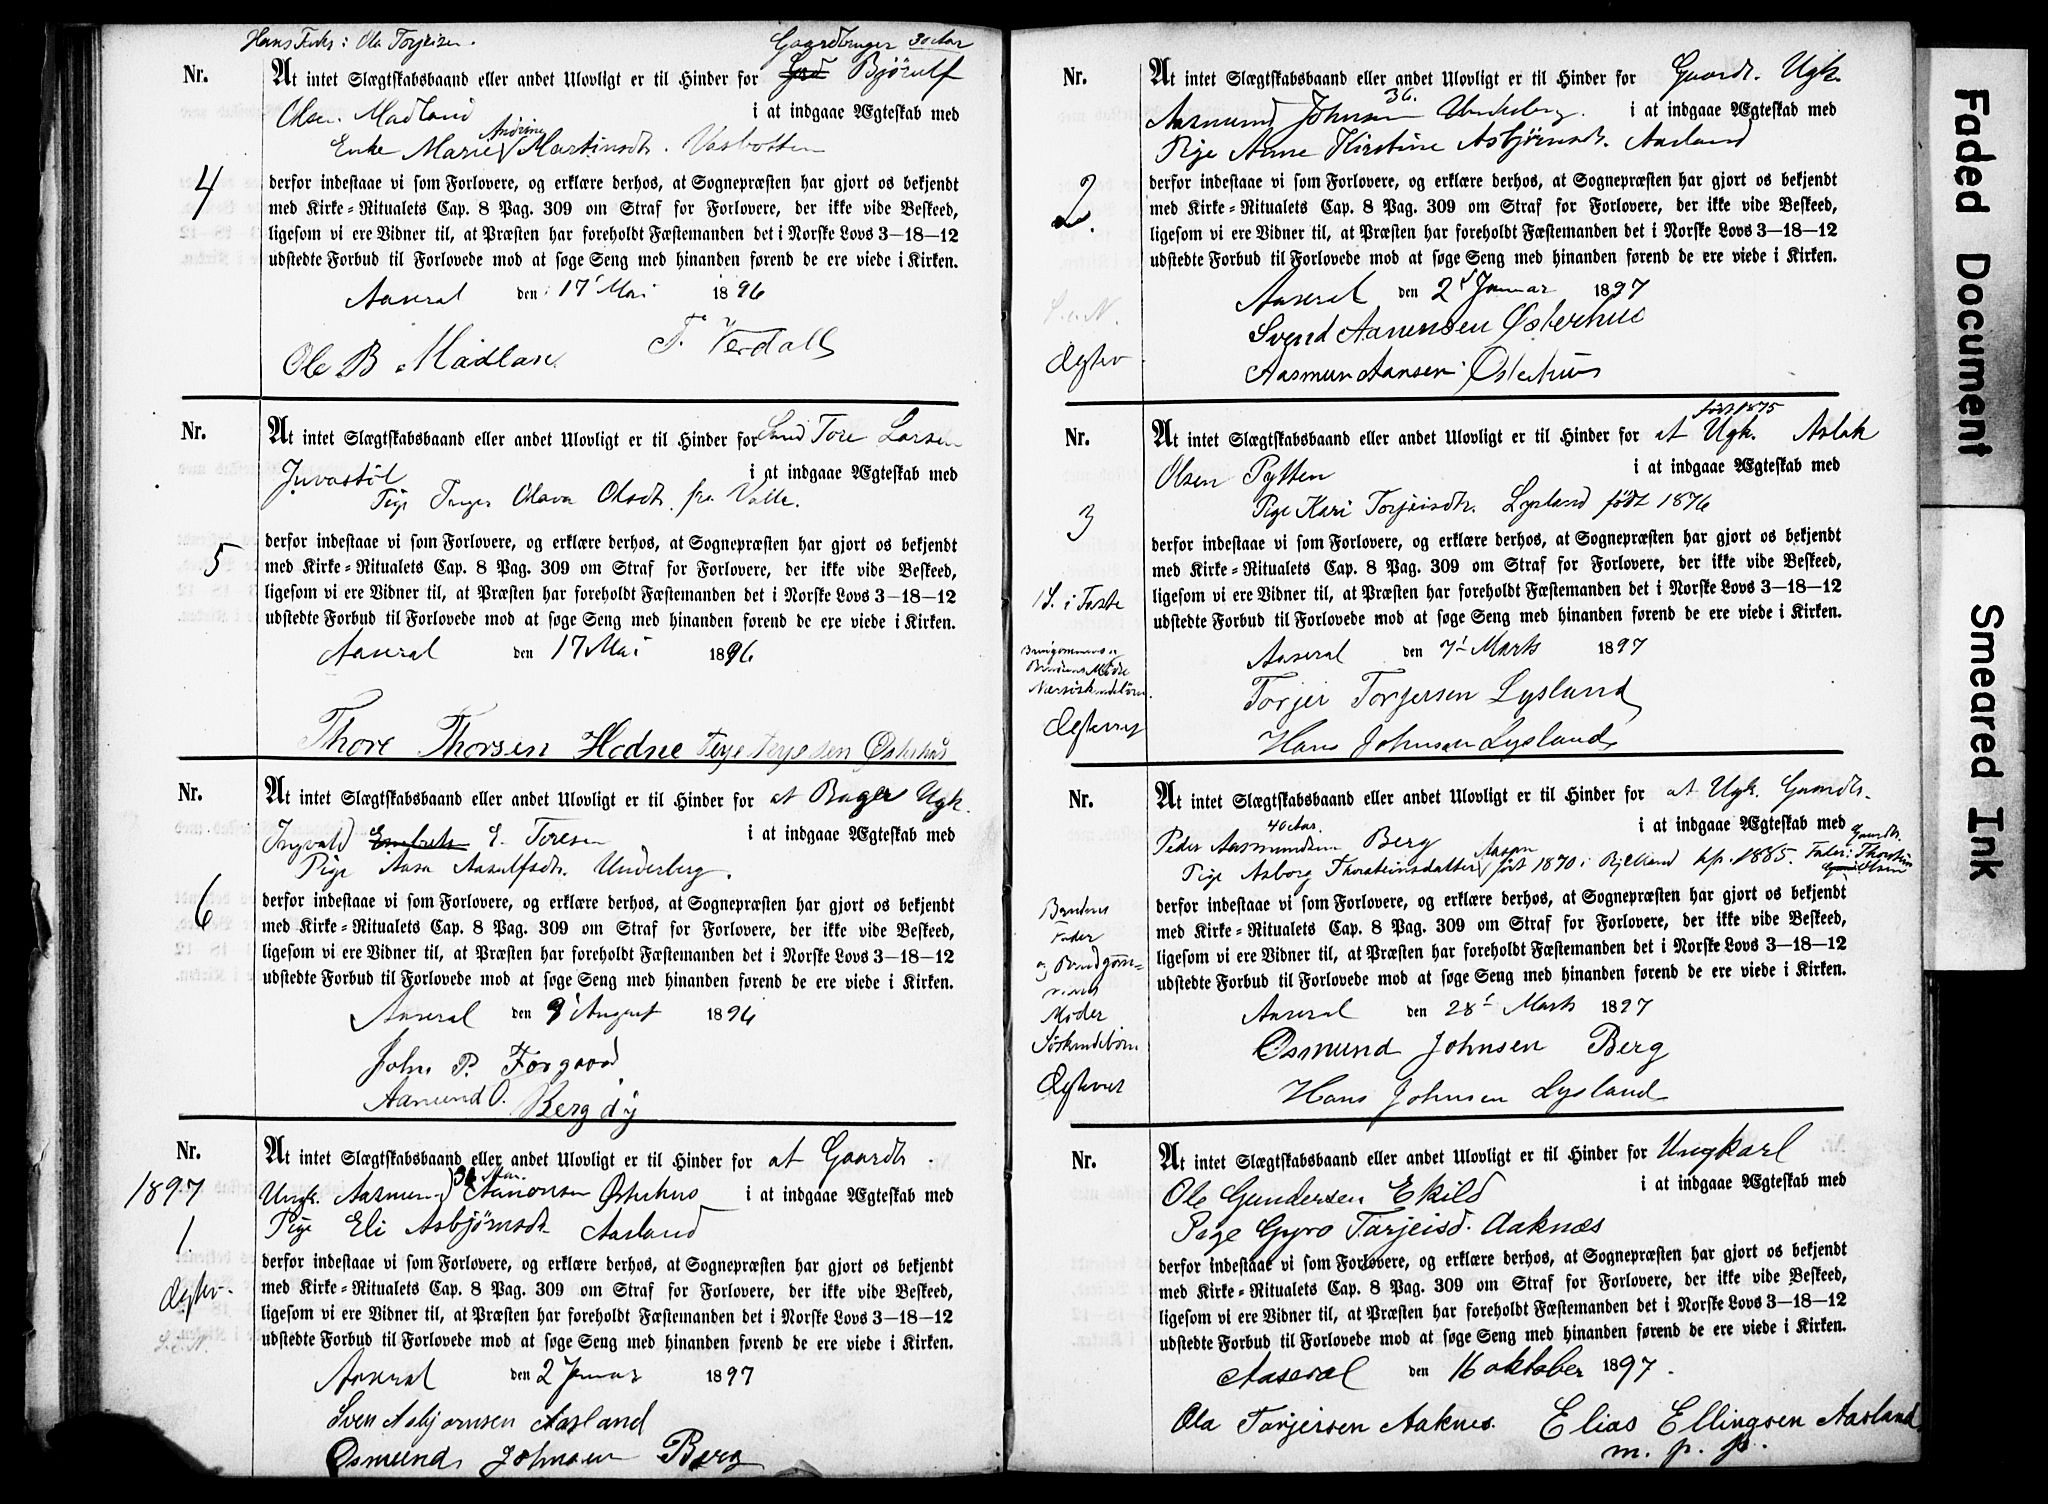 Hans Fader: Ola Torjeisen.
Gaardbruger 30 Aar
Nr. At intet Slægtskabsbaand eller andet Ulovligt er til Hinder for Bjørulf
Olsen Madland i at indgaae Ægteskab med
Andrine
Enke Marie Martinsdtr. Vasbotten
4
derfor indestaae vi som Forlovere, og erklære derhos, at Sognepræsten har gjort os bekjendt
med Kirke-Ritualets Cap. 8 Pag. 309 om Straf for Forlovere, der ikke vide Beskeed,
ligesom vi ere Vidner til, at Præsten har foreholdt Fæstemanden det i Norske Lovs 3-18-12
udstedte Forbud til Forlovede mod at søge Seng med hinanden førend de ere viede i Kirken.
Aaseral den 17' Mai 1896
Ole B. Madlan T. Verdall
Nr. At intet Slægtskabsbaand eller andet Ulovligt er til Hinder for Tore Larsen
Juvastøl i at indgaae Ægteskab med
Pige Inger Olava Olsdtr. fra Valle.
5
derfor indestaae vi som Forlovere, og erklære derhos, at Sognepræsten har gjort os bekjendt
med Kirke-Ritualets Cap. 8 Pag. 309 om Straf for Forlovere, der ikke vide Beskeed,
ligesom vi ere Vidner til, at Præsten har foreholdt Fæstemanden det i Norske Lovs 3-18-12
udstedte Forbud til Forlovede mod at søge Seng med hinanden førend de ere viede i Kirken.
Aaseral den 17 Mai 1896
Thore Thorsen Hodne Terje Terjesen Østerhus
Nr. At intet Slægtskabsbaand eller andet Ulovligt er til Hinder for at Bager Ugk.
Ingvald E. Toresen i at indgaae Ægteskab med
Pige Aasa Aasulfsdtr. Underberg.
6
derfor indestaae vi som Forlovere, og erklære derhos, at Sognepræsten har gjort os bekjendt
med Kirke-Ritualets Cap. 8 Pag. 309 om Straf for Forlovere, der ikke vide Beskeed,
ligesom vi ere Vidner til, at Præsten har foreholdt Fæstemanden det i Norske Lovs 3-18-12
udstedte Forbud til Forlovede mod at søge Seng med hinanden førend de ere viede i Kirken.
Aaseral den 9' August 1896
John P. Forgaard
Aamund O. Bergdøj
Nr. At intet Slægtskabsbaand eller andet Ulovligt er til Hinder for at Gaardbr.
1897 Ungk. Aasmund Aanonsen Østerhus i at indgaae Ægteskab med
Pige Eli Asbjørnsdtr Aasland
1.
derfor indestaae vi som Forlovere, og erklære derhos, at Sognepræsten har gjort os bekjendt
med Kirke-Ritualets Cap. 8 Pag. 309 om Straf for Forlovere, der ikke vide Beskeed,
ligesom vi ere Vidner til, at Præsten har foreholdt Fæstemanden det i Norske Lovs 3-18-12
udstedte Forbud til Forlovede mod at søge Seng med hinanden førend de ere viede i Kirken.
Aaseral den 2 Januar 1897
Sven Asbjørnsen Aasland
Osmund Johnsen Berg
Nr. At intet Slægtskabsbaand eller andet Ulovligt er til Hinder for Gaardbr. Ugk.
36.
Aasmund Johnsen i at indgaae Ægteskab med
Pige Anne Kirstine Asbjørnsdt. Aasland
2.
derfor indestaae vi som Forlovere, og erklære derhos, at Sognepræsten har gjort os bekjendt
med Kirke-Ritualets Cap. 8 Pag. 309 om Straf for Forlovere, der ikke vide Beskeed,
ligesom vi ere Vidner til, at Præsten har foreholdt Fæstemanden det i Norske Lovs 3-18-12
udstedte Forbud til Forlovede mod at søge Seng med hinanden førend de ere viede i Kirken.
Aaseral den 2 Januar 1897
Svend Aanensen Østerhus
Aasmun Aansen Østerhus
født 1875
Nr. At intet Slægtskabsbaand eller andet Ulovligt er til Hinder for at Ugk. Aslak
Olsen Pytten i at indgaae Ægteskab med
Pige Kari Torjeisdtr. Lysland født 1876
3
derfor indestaae vi som Forlovere, og erklære derhos, at Sognepræsten har gjort os bekjendt
med Kirke-Ritualets Cap. 8 Pag. 309 om Straf for Forlovere, der ikke vide Beskeed,
ligesom vi ere Vidner til, at Præsten har foreholdt Fæstemanden det i Norske Lovs 3-18-12
udstedte Forbud til Forlovede mod at søge Seng med hinanden førend de ere viede i Kirken.
1 S. i Faste
Brudens Moder
Næstsøskendebørn.
Aaseral den 7' Marts 1897
Torjer Torjersen Lysland
Hans Johnsen Lysland
Nr. At intet Slægtskabsbaand eller andet Ulovligt er til Hinder for at Ugk. Gaardbr.
40 Aar.
Peder Aasmundsen Berg i at indgaae Ægteskab med
Pige Asborg Thorsteinsdatter født 1870 i Bjelland kf. 1885. Fader: Gaardbr. Thorstein Olsen
derfor indestaae vi som Forlovere, og erklære derhos, at Sognepræsten har gjort os bekjendt
med Kirke-Ritualets Cap. 8 Pag. 309 om Straf for Forlovere, der ikke vide Beskeed,
ligesom vi ere Vidner til, at Præsten har foreholdt Fæstemanden det i Norske Lovs 3-18-12
udstedte Forbud til Forlovede mod at søge Seng med hinanden førend de ere viede i Kirken.
Brudens
Fader
og Brudgom-
mens
Moder
Søskendebørn
Aaseral den 28' Marts 1897
Osmund Johnsen Berg
Hans Johnsen Lysland
Nr. At intet Slægtskabsbaand eller andet Ulovligt er til Hinder for Ungkarl
Ole Gundersen Ekild i at indgaae Ægteskab med
Pige Gyro Tarjeisd. Aaknæs
derfor indestaae vi som Forlovere, og erklære derhos, at Sognepræsten har gjort os bekjendt
med Kirke-Ritualets Cap. 8 Pag. 309 om Straf for Forlovere, der ikke vide Beskeed,
ligesom vi ere Vidner til, at Præsten har foreholdt Fæstemanden det i Norske Lovs 3-18-12
udstedte Forbud til Forlovede mod at søge Seng med hinanden førend de ere viede i Kirken.
Aaseral den 16 oktober 1897.
Ola Tarjersen Aaknes. Elias Ellingsen Aasland
m. p. p.
Faded Document
Smeared Ink